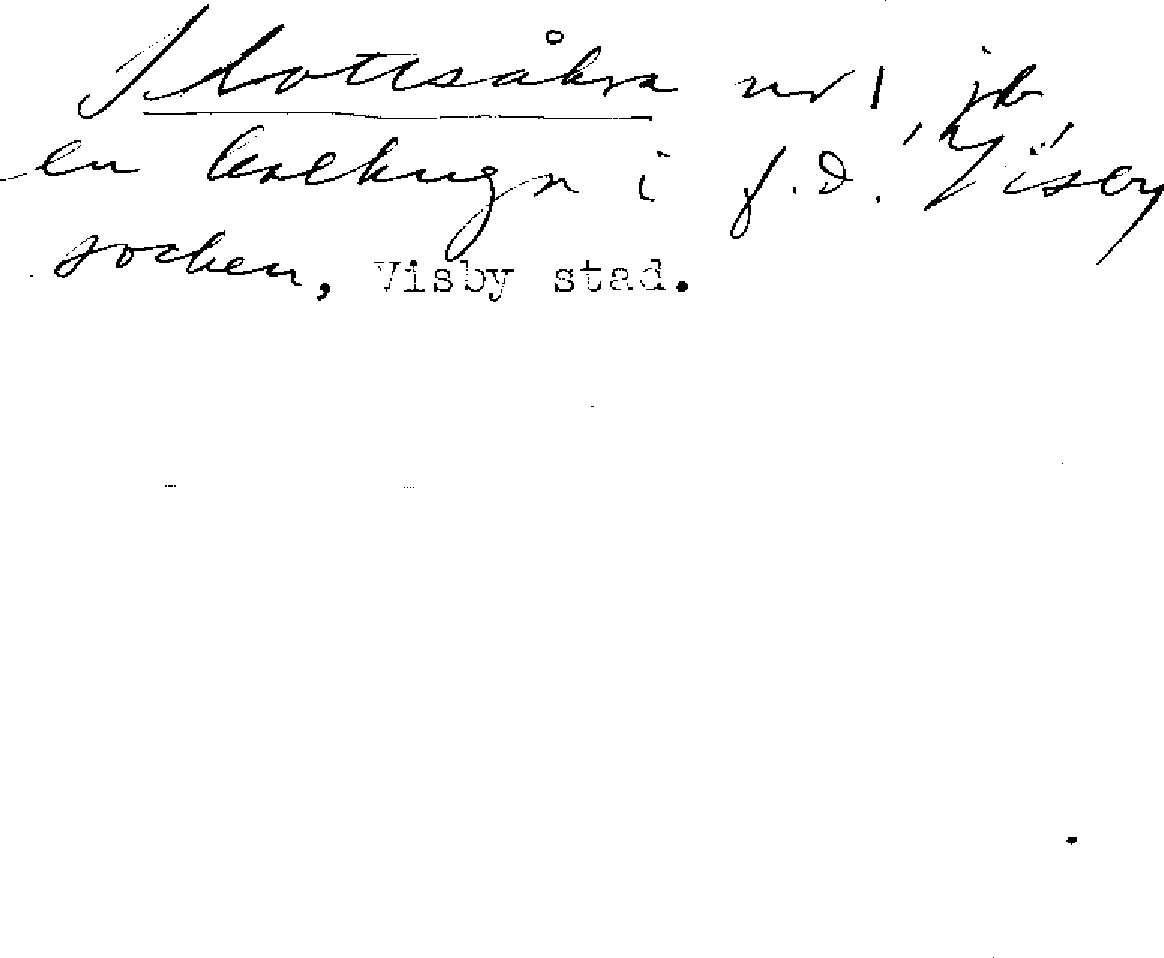 Slottsåkra nr 1, på
en kalkugn i f.d. Visby
socken, Visby stad.